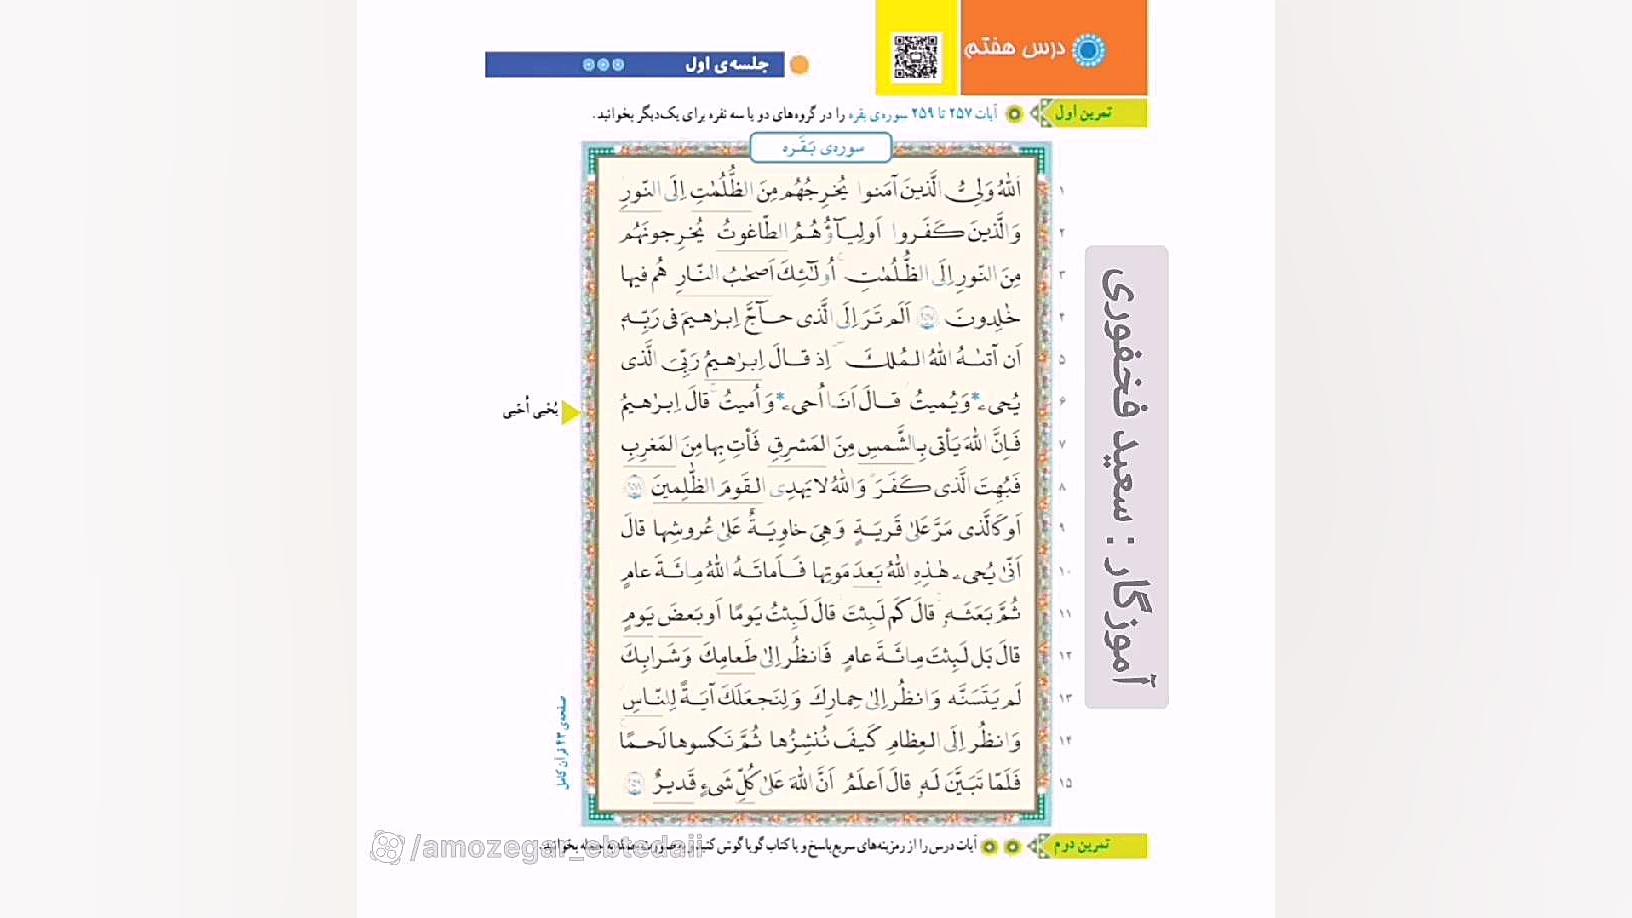 درس هفتم
جلسه‌ی اول
تمرین اول
آیات ۲۵۷ تا ۲۵۹ سوره‌ی بقره را در گروه‌های دو یا سه نفره برای یک‌دیگر بخوانید.
سوره‌ی بَقَره
۱ اَللّٰهُ وَلِیُّ الَّذینَ آمَنوا یُخرِجُهُم مِنَ الظُّلُمٰتِ اِلَی النّورِ
۲ وَ الَّذینَ کَفَروا اَولِیآؤُهُمُ الطّاغوتُ یُخرِجونَهُم
۳ مِنَ النّورِ اِلَی الظُّلُمٰتِ اُولٰئِکَ اَصحٰبُ النّارِ هُم فیها
۴ خٰلِدونَ ﴿۲۵۷﴾ اَلَم تَرَ اِلَی الَّذی حآجَّ اِبرٰهیمَ فی رَبِّهٖ
۵ اَن آتٰىهُ اللّٰهُ المُلکَ اِذ قالَ اِبرٰهیمُ رَبِّیَ الَّذی
۶ یُحیۦ* وَ یُمیتُ قالَ اَنَا اُحیۦ* وَ اُمیتُ قالَ اِبرٰهیمُ
یُحْیی اُحْیی
۷ فَاِنَّ اللّٰهَ یَأتی بِالشَّمسِ مِنَ المَشرِقِ فَأتِ بِها مِنَ المَغرِبِ
۸ فَبُهِتَ الَّذی کَفَرَ وَ اللّٰهُ لا یَهدِی القَومَ الظّٰلِمینَ ﴿۲۵۸﴾
۹ اَو کَالَّذی مَرَّ عَلیٰ قَریَةٍ وَ هِیَ خاوِیَةٌ عَلیٰ عُروشِها قالَ
۱۰ اَنّیٰ یُحیۦ هٰذِهِ اللّٰهُ بَعدَ مَوتِها فَاَماتَهُ اللّٰهُ مِائَةَ عامٍ
۱۱ ثُمَّ بَعَثَهٗ قالَ کَم لَبِثتَ قالَ لَبِثتُ یَومًا اَو بَعضَ یَومٍ
۱۲ قالَ بَل لَبِثتَ مِائَةَ عامٍ فَانظُر اِلیٰ طَعامِکَ وَ شَرابِکَ
۱۳ لَم یَتَسَنَّه وَ انظُر اِلیٰ حِمارِکَ وَ لِنَجعَلَکَ آیَةً لِلنّاسِ
۱۴ وَ انظُر اِلَی العِظامِ کَیفَ نُنشِزُها ثُمَّ نَکسوها لَحمًا
۱۵ فَلَمّا تَبَیَّنَ لَهٗ قالَ اَعلَمُ اَنَّ اللّٰهَ عَلیٰ کُلِّ شَیءٍ قَدیرٌ ﴿۲۵۹﴾
صفحه‌ی ۴۳ قرآن کامل
آموزگار : سعید فخفوری
تمرین دوم
آیات درس را از رمزینه‌های سریع‌پاسخ و یا کتاب گویا گوش کنید و به‌صورت بخوانید.
/amozegar_ebtedaii